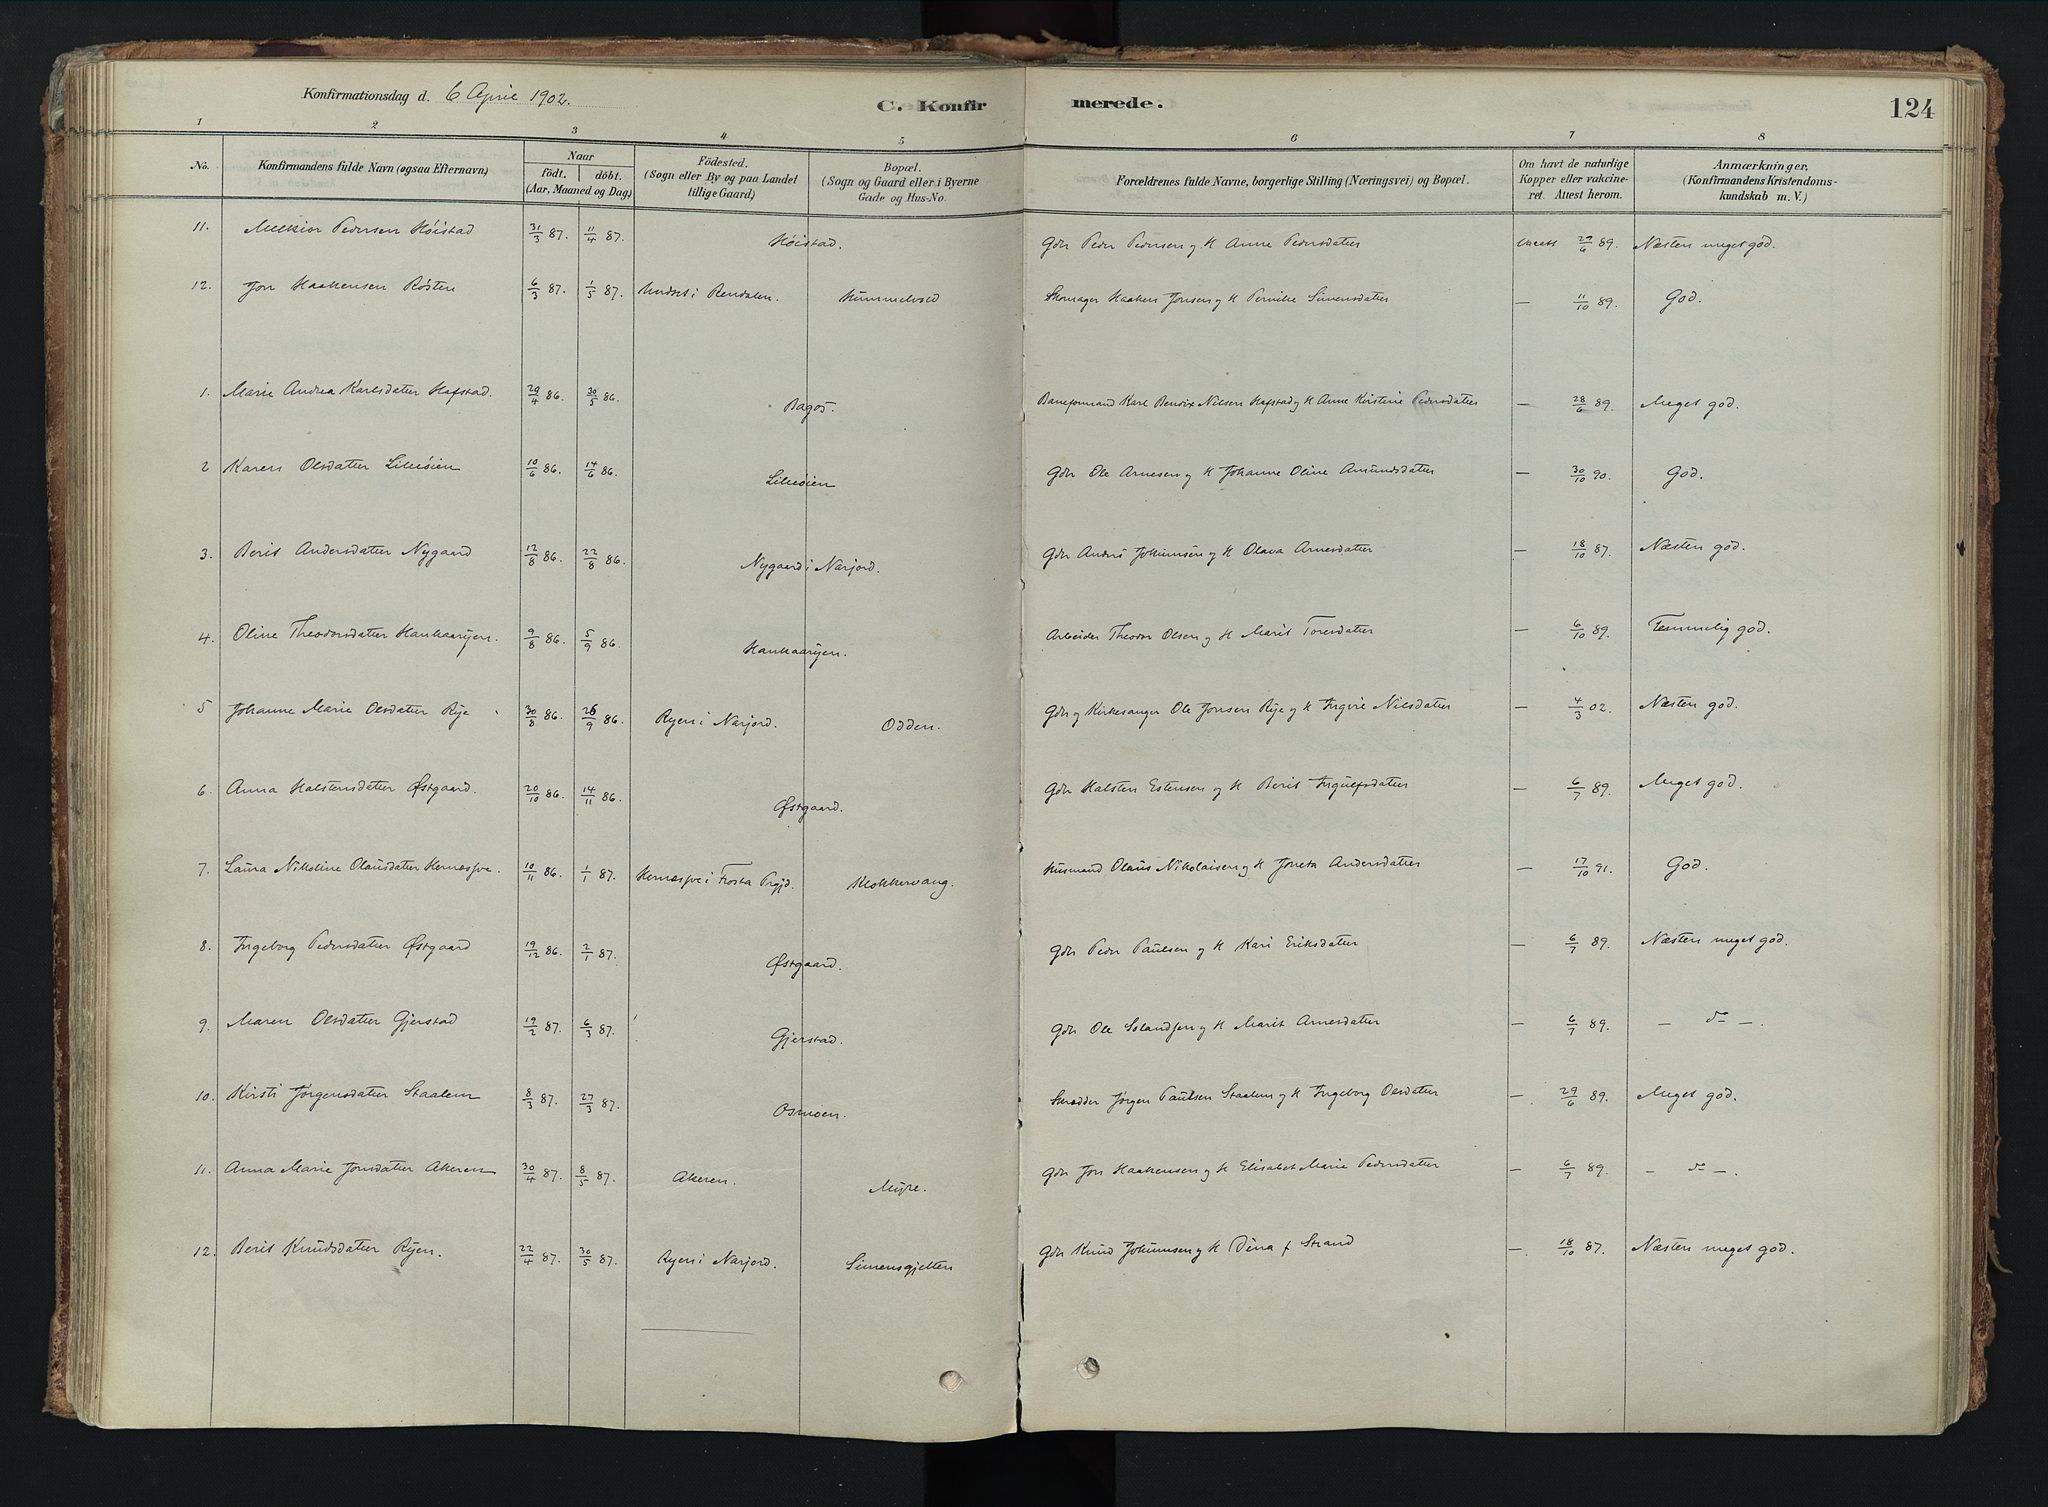 Konfirmationsdag d. 6 April 1902.
C. Konfir merede.
124
1 2 3 4 5 6 7 8
No.
Konfirmandens fulde Navn (ogsaa Efternavn)
Naar
födt. döbt.
(Aar, Maaned og Dag)
Födested.
(Sogn eller By og paa Landet
tillige Gaard)
Bopæl.
(Sogn og Gaard eller i Byerne
Gade og Hus-No.
Forældrenes fulde Navne, borgerlige Stilling (Næringsvei) og Bopæl.
Om havt de naturlige
Kopper eller vakcine-
ret. Attest herom.
Anmærkninger,
(Konfirmandens Kristendoms-
kundskab m. V.)
11. Melkior Pedersen Höistad 31/3 87. 11/4 87. Höistad. Gdr Peder Pedersen og H Anne Pedersdatter 29/6 89. Næsten meget god.
12. Jon Haakensen Røsten 6/3 87. 1/5 87. Undset i Rendalen. Hummelvold Skomager Haaken Jonsen og H Pernille Simensdatter — 11/10 89. God.
1. Marie Andrea Karlsdatter Hafstad. 29/4 86. 30/5 86. Bagös. Baneformand Karl Bendix Nilsen Hafstad og H Anne Kirstine Pedersdatter — 28/6 89. Meget god.
2 Karen Olsdatter Lilleöien 10/6 86. 14/6 86. Lilleöien Gdr Ole Arnesen og H Johanne Oline Amundsdatter — 30/10 90. God.
3. Berit Andersdatter Nygaard 12/8 86. 22/8 86. Nygaard i Narjord. Gdr Anders Johnnsen og H Olava Arnesdatter — 18/10 87. Næsten god.
4. Oline Theodorsdatter Hanhaarjen. 9/8 86. 5/9 86. Hanhaarjen. Arbeider Theodor Olsen og H Marit Toresdatter — 6/10 89. Temmelig god.
5 Johanne Marie Olsdatter Rye 30/8 86. 26/9 86. Ryen i Narjord. Odden. Gdr og Kirkesanger Ole Jonsen Rye og H Ingrie Nilsdatter — 4/3 02. Næsten god.
6. Anna Halstensdatter Østgaard. 20/10 86. 14/11 86. Østgaard. Gdr Halsten Estensen og H Berit Ingulfsdatter — 6/7 89. Meget god.
7. Laura Nikoline Olausdatter Hernesjve. 10/11 86. 1/1 87. Hernesjve i Frosta Prgjd. Klokkervang. Husmand Olaus Nikolaisen og H Joneta Andersdatter — 17/10 91. God.
8. Ingeborg Pedersdatter Østgaard 19/12 86. 2/1 87. Østgaard. Gdr Peder Paulsen og H Kari Eriksdatter — 6/7 89. Næsten meget god.
9. Maren Olsdatter Gjerstad 19/2 87. 6/3 87. Gjerstad. Gdr Ole Solandsen og H Marit Arnesdatter — 6/7 89. — do —.
10. Kirsti Jörgensdatter Staalem 8/3 87. 27/3 87. Osmoen. Skrædder Jörgen Paulsen Staalem og H Ingeborg Olsdatter —. 29/6 89. Meget god.
11. Anna Marie Jonsdatter Akeren 30/4 87. 8/5 87. Akeren. Myre. Gdr Jon Haakensen og H Elisabet Marie Pedersdatter — 6/7 89. — do —.
12. Berit Knudsdatter Ryen. 22/4 87. 30/5 87. Ryen i Narjord. Simensgjelten Gdr Knud Johnnsen og H Dina f Strand —. 18/10 87. Næsten meget god.